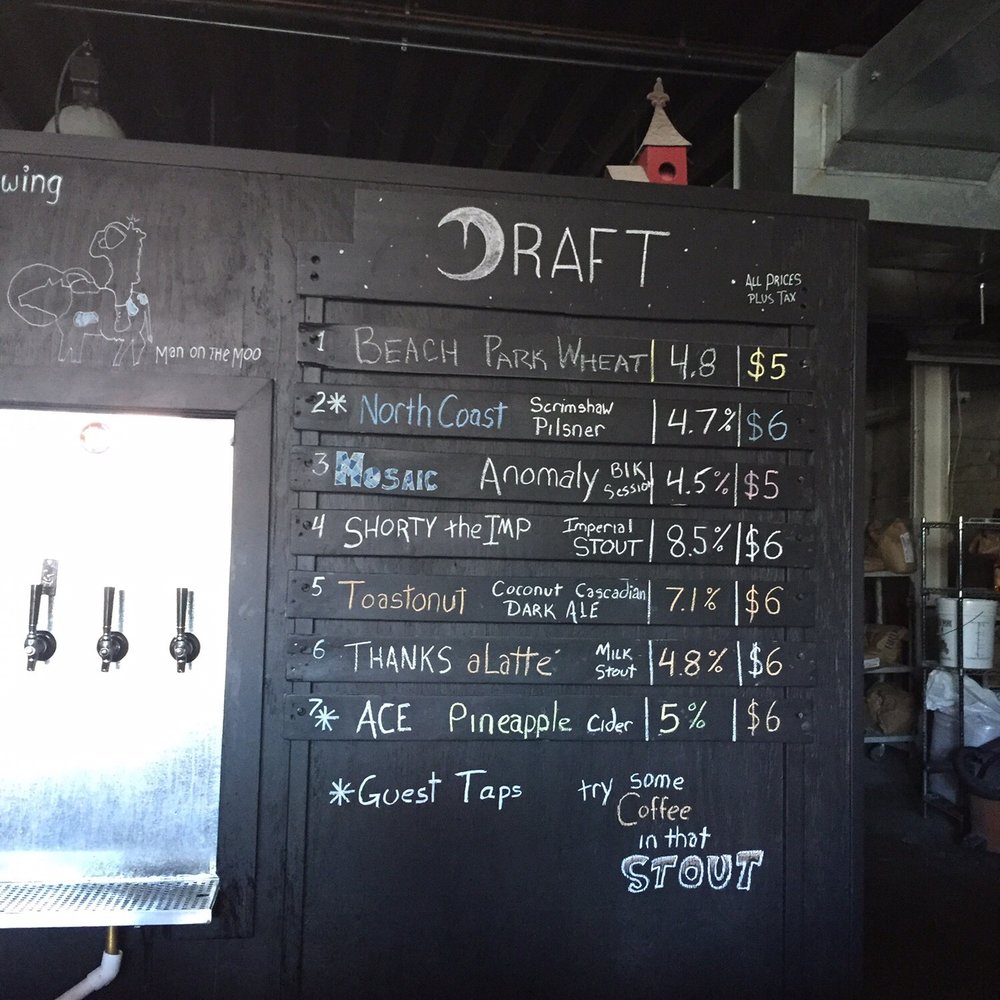 wing
Man on the Moo
DRAFT
• All Prices
Plus Tax
1 Beach Park Wheat | 4.8 | $5
2* North Coast Scrimshaw Pilsner | 4.7% | $6
3 Mosaic Anomaly Blk Session | 4.5% | $5
4 Shorty the Imp Imperial Stout | 8.5% | $6
5 Toastonut Coconut Cascadian Dark Ale | 7.1% | $6
6 Thanks aLatté Milk Stout | 4.8% | $6
7* ACE Pineapple Cider | 5% | $6
*Guest Taps
try some
Coffee
in that
STOUT